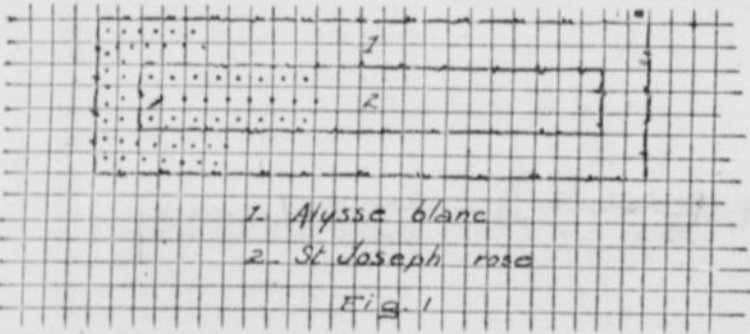 1
2
1- Alysse blanc
2- St Joseph rose
Fig. 1